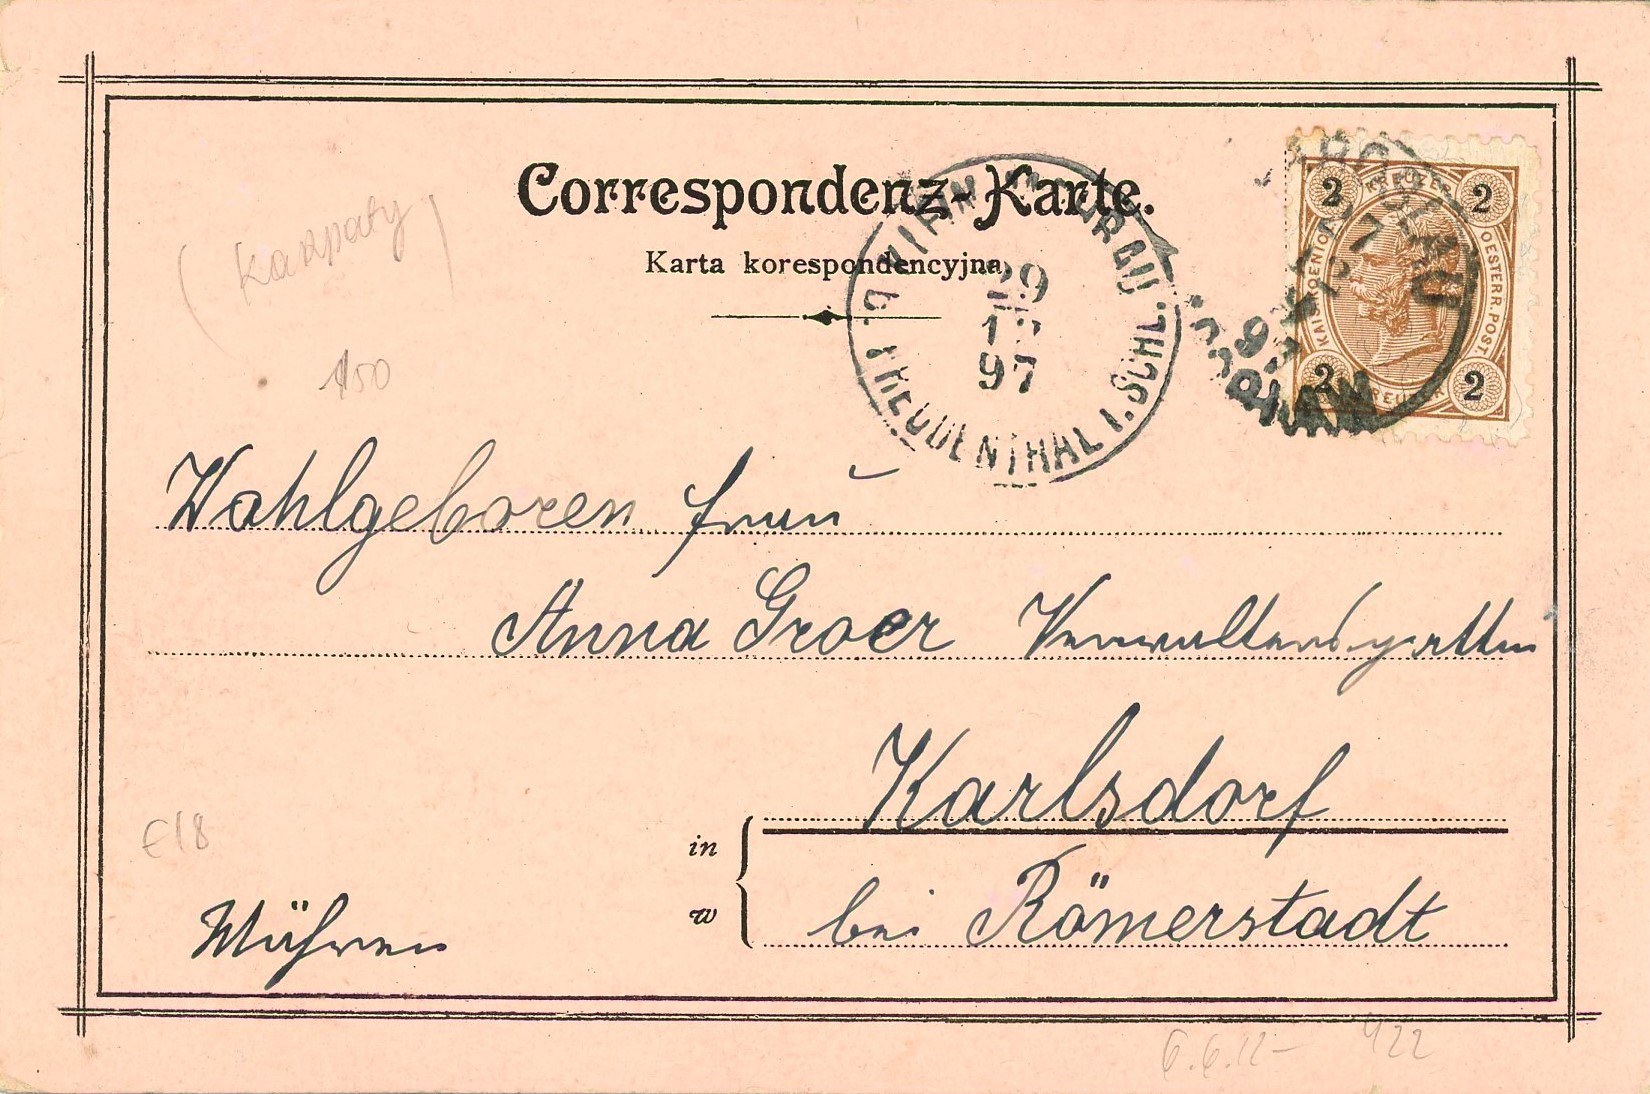 Correspondenz-Karte.
Karta korespondencyjna
(Karpaty)
150
29
12
97
FREUDENTHAL I. SCHL.
JAROSLAU
2 KREUZER 2
KAIS. KOENIGL. OESTERR. POST.
2 KREUZER 2
Wohlgeboren Frau
Anna Groer Verwaltersgattin
Karlsdorf
in
w
bei Römerstadt
E18
Mähren
6.6.12-
422